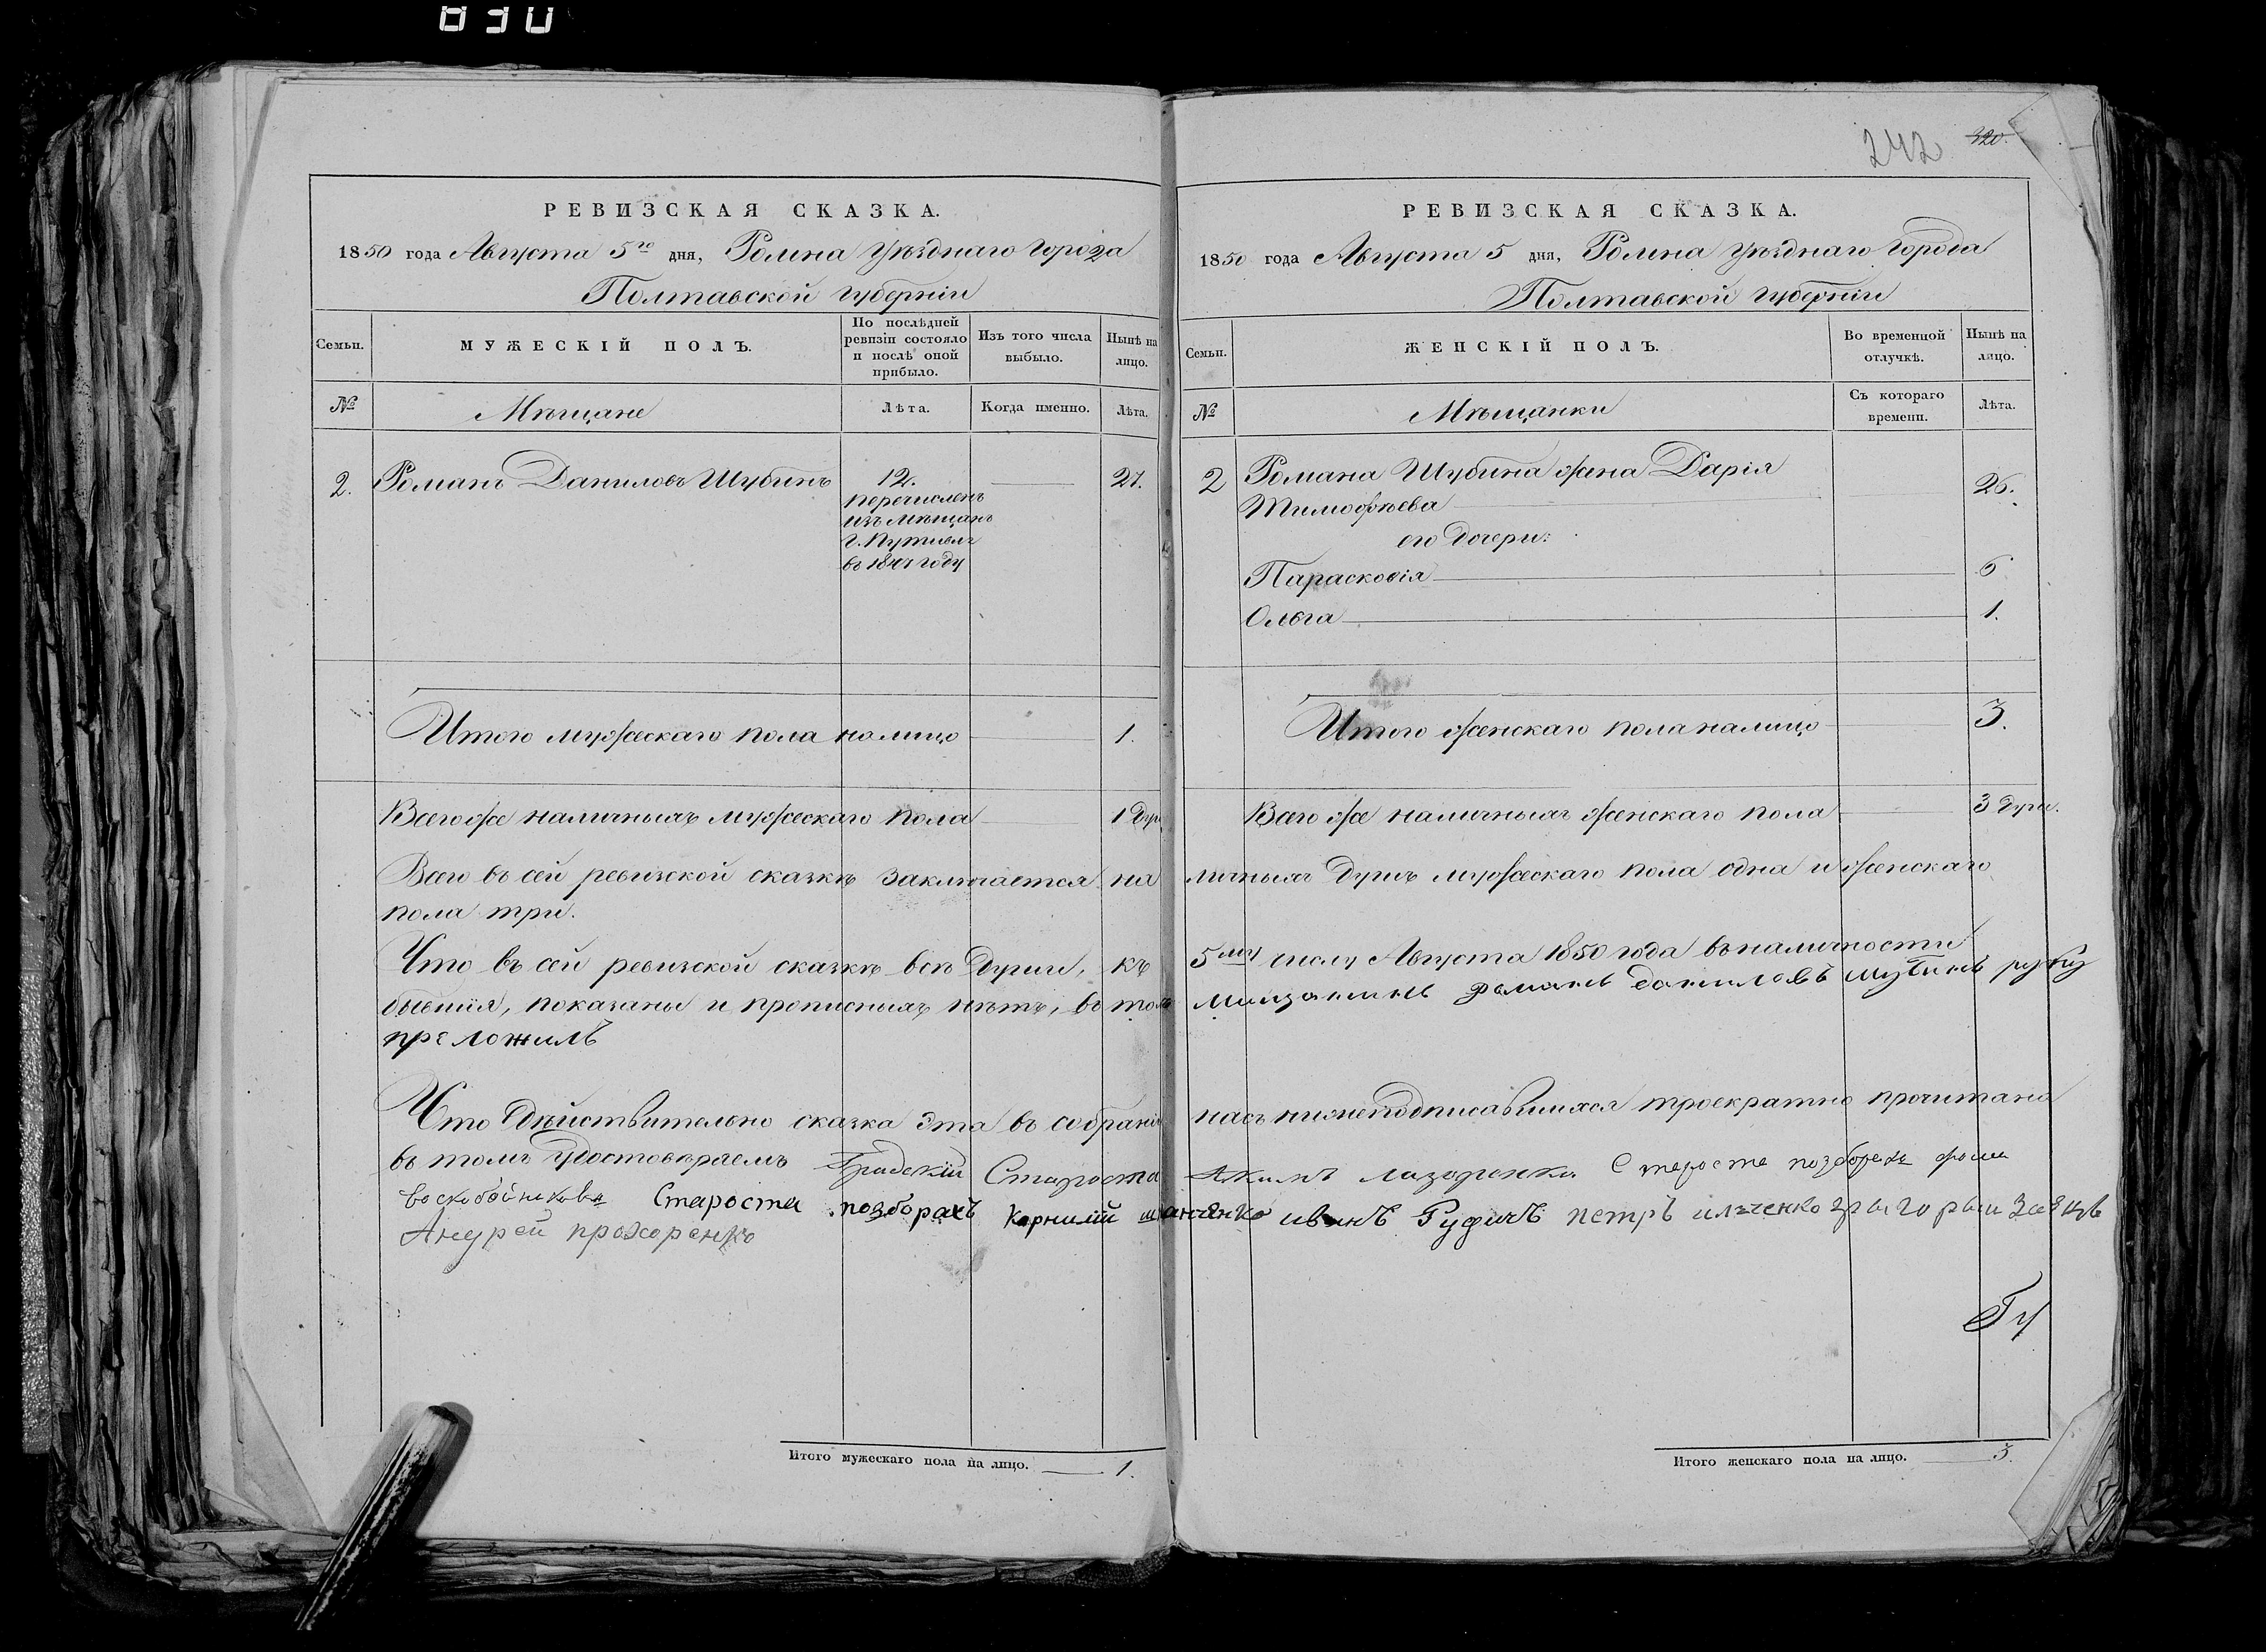 030
242 320.
РЕВИЗСКАЯ СКАЗКА.
1850 года Августа 5го дня, Ромна уѣзднаго города
Полтавской губерніи
Семьи.
МУЖЕСКІЙ ПОЛЪ.
По послѣдней ревизіи состояло и послѣ оной прибыло.
Изъ того числа выбыло.
Нынѣ на лицо.
№
Мѣщане
Лѣта.
Когда именно.
Лѣта.
2. Романъ Даниловъ Шубинъ 12. 21.
перечисленъ
изъ мѣщанъ
г. Путивля
въ 1841 году
Итого мужескаго пола налицо 1.
Всего же наличныхъ мужескаго пола 1 душ
РЕВИЗСКАЯ СКАЗКА.
1850 года Августа 5 дня, Ромна уѣзднаго города
Полтавской губерніи
Семьи.
ЖЕНСКІЙ ПОЛЪ.
Во временной отлучкѣ.
Нынѣ на лицо.
№
Мѣщанки
Съ котораго времени.
Лѣта.
2 Романа Шубина жена Дарія
Тимофѣева 26.
его дочери:
Парасковія 6
Ольга 1.
Итого женскаго пола налицо 3.
Всего же наличныхъ женскаго пола 3 души.
Всего въ сей ревизской сказкѣ заключается наличныхъ душъ мужескаго пола одна и женскаго
пола три.
Что въ сей ревизской сказкѣ всѣ души, къ 5му числу Августа 1850 года въ наличности
бывшія, показаны и прописныхъ нѣтъ, въ томъ мищанинъ романъ даниловъ шубинъ руку
преложилъ
Что дѣйствительно сказка эта въ собраніи насъ нижеподписавшихся троекратно прочитана
въ томъ удостовѣряемъ Градскій Староста Акимъ лазоренко Староста позборахъ фома
воскобойниковъ Староста позборахъ Корнилій иванъ Рудичъ петръ илченко григорыи Заяцъ
Андрей прохоренко
Итого мужескаго пола на лицо. 1.
Итого женскаго пола на лицо. 3.